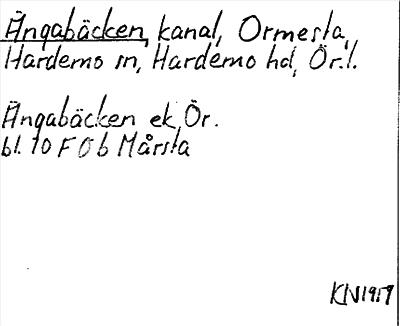 Ängabäcken, kanal, Ormesta,
Hardemo sn, Hardemo hd, Ör. l.
Ängabäcken ek, Ör.
bl. 10 F 0 b Mårsta
KN 1959